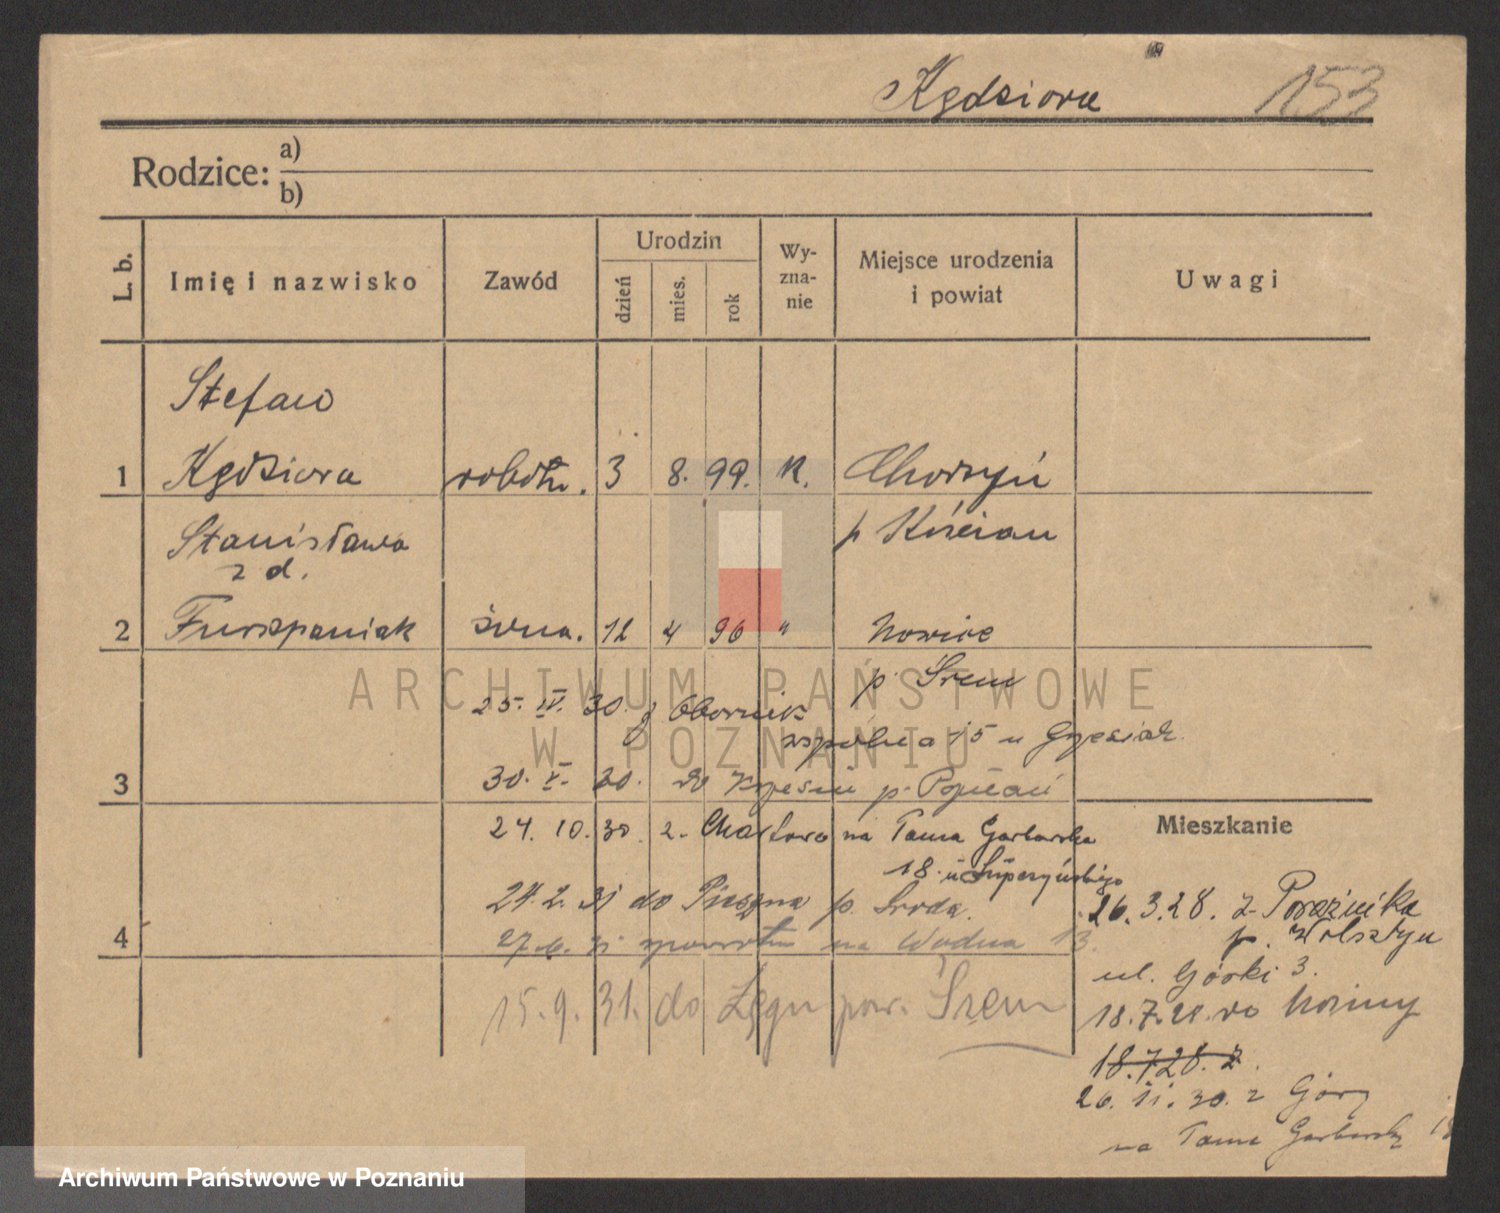 Kędziora 153
Rodzice: a)
b)
L. b. Imię i nazwisko Zawód Urodzin dzień mies. rok Wy-zna-nie Miejsce urodzenia i powiat Uwagi
Stefan
1 Kędziora robotn. 3 8. 99. K. Choryń
p Kościan
Stanisława
z d.
2 Furszpaniak żona. 12 4 96 " Nowiec
p. Śrem
ARCHIWUM PAŃSTWOWE
W POZNANIU
25. IV. 30. z Obornik
wspólna 15 u Grzesiak
3 30. V. 30. do Krzesin p. Poznań
24. 10. 30. z Chartowa na Tama Garbarska
18.
24. 2. 31 do p. Środa.
4 27. 6. 31 zpowrotem na Wodna 13.
15. 9. 31. do Łęgu pow. Śrem
Mieszkanie
26. 3. 28. z
p. Wolsztyn
ul. Górki 3.
18. 7. 28. do
18. 7. 28. z
26. 11. 30. z Góry
na Tama Garbarska 18
Archiwum Państwowe w Poznaniu